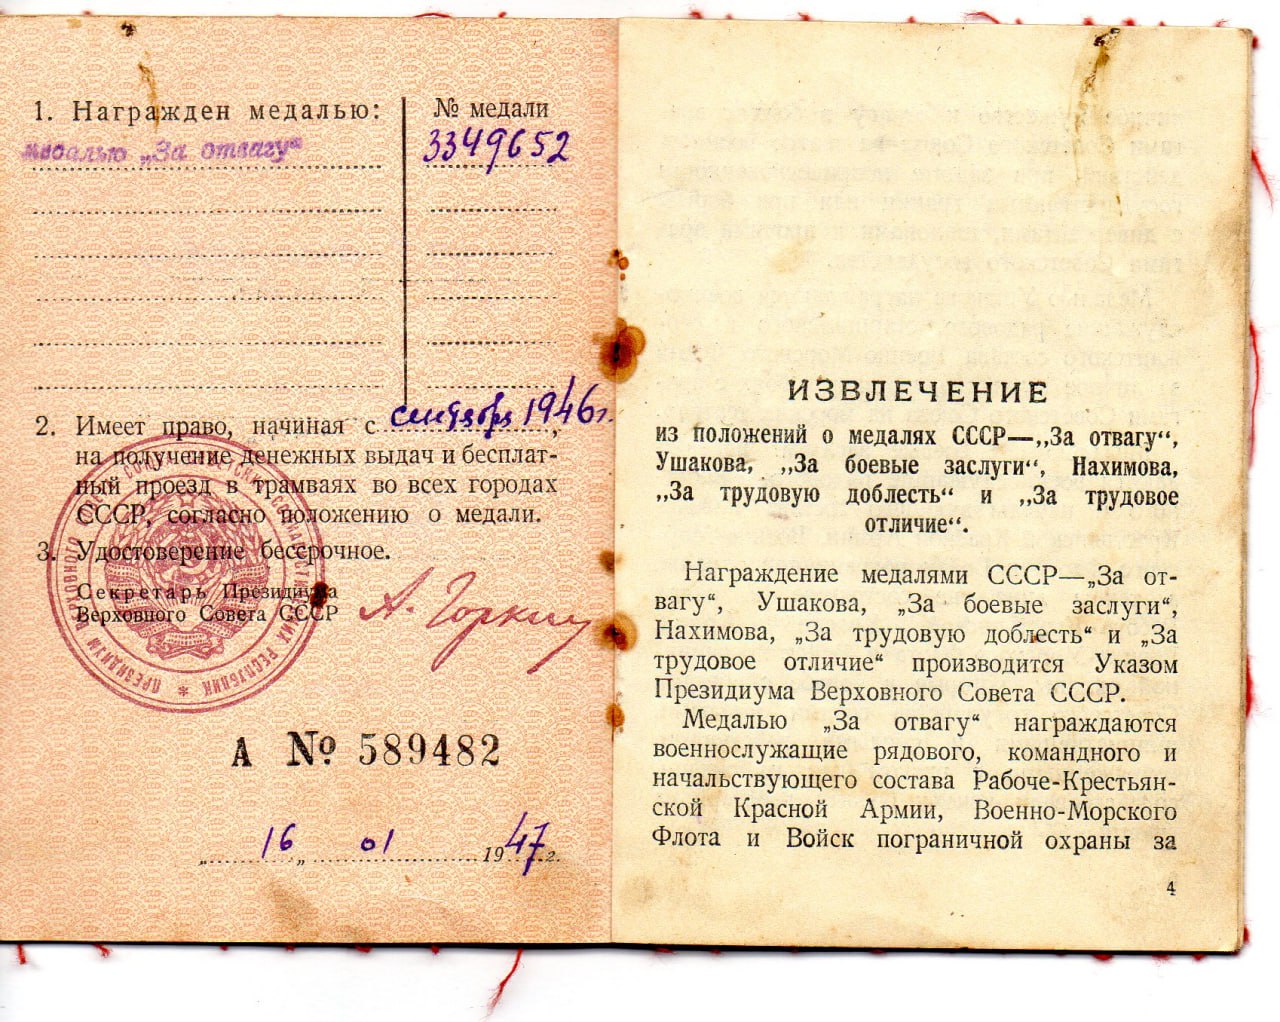 1. Награжден медалью:
№ медали
медалью „За отвагу“
3349652
2. Имеет право, начиная с сентября 1946г.,
на получение денежных выдач и бесплат-
ный проезд в трамваях во всех городах
СССР, согласно положению о медали.
3. Удостоверение бессрочное.
Секретарь Президиума
Верховного Совета СССР
А. Горкин
ПРЕЗИДИУМ ВЕРХОВНОГО
А № 589482
„ 16 „ 01 1947 г.
ИЗВЛЕЧЕНИЕ
из положений о медалях СССР—„За отвагу“,
Ушакова, „За боевые заслуги“, Нахимова,
„За трудовую доблесть“ и „За трудовое
отличие“.
Награждение медалями СССР—„За от-
вагу“, Ушакова, „За боевые заслуги“,
Нахимова, „За трудовую доблесть“ и „За
трудовое отличие“ производится Указом
Президиума Верховного Совета СССР.
Медалью „За отвагу“ награждаются
военнослужащие рядового, командного и
начальствующего состава Рабоче-Крестьян-
ской Красной Армии, Военно-Морского
Флота и Войск пограничной охраны за
4